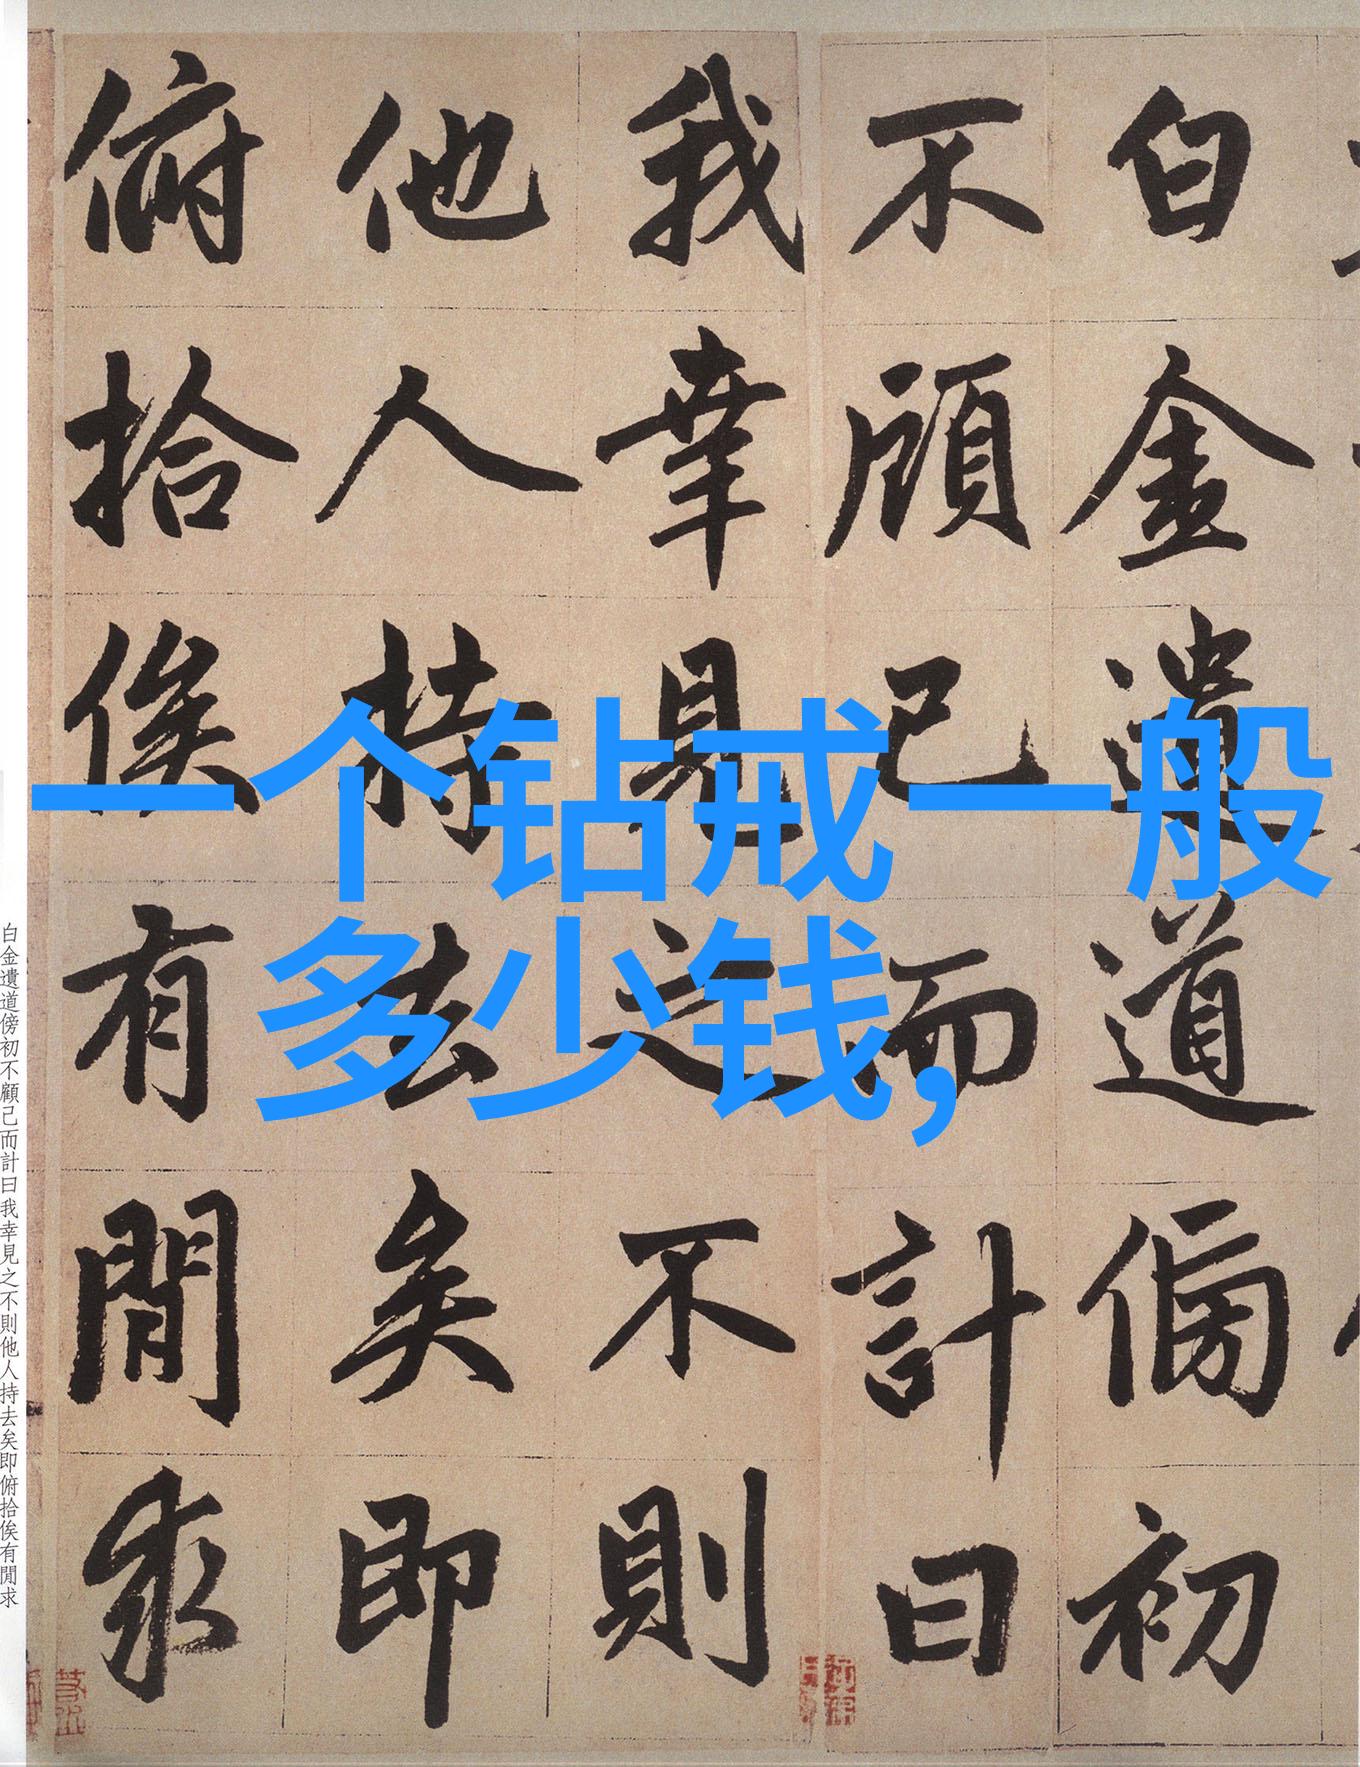 白金遺道傍初
不顧己而計曰
我幸見之不則
他人持去矣即
俯拾俟有閒求
一个钻戒一般
多少钱,
白金遺道傍初不顧己而計曰我幸見之不則他人持去矣即俯拾俟有閒求